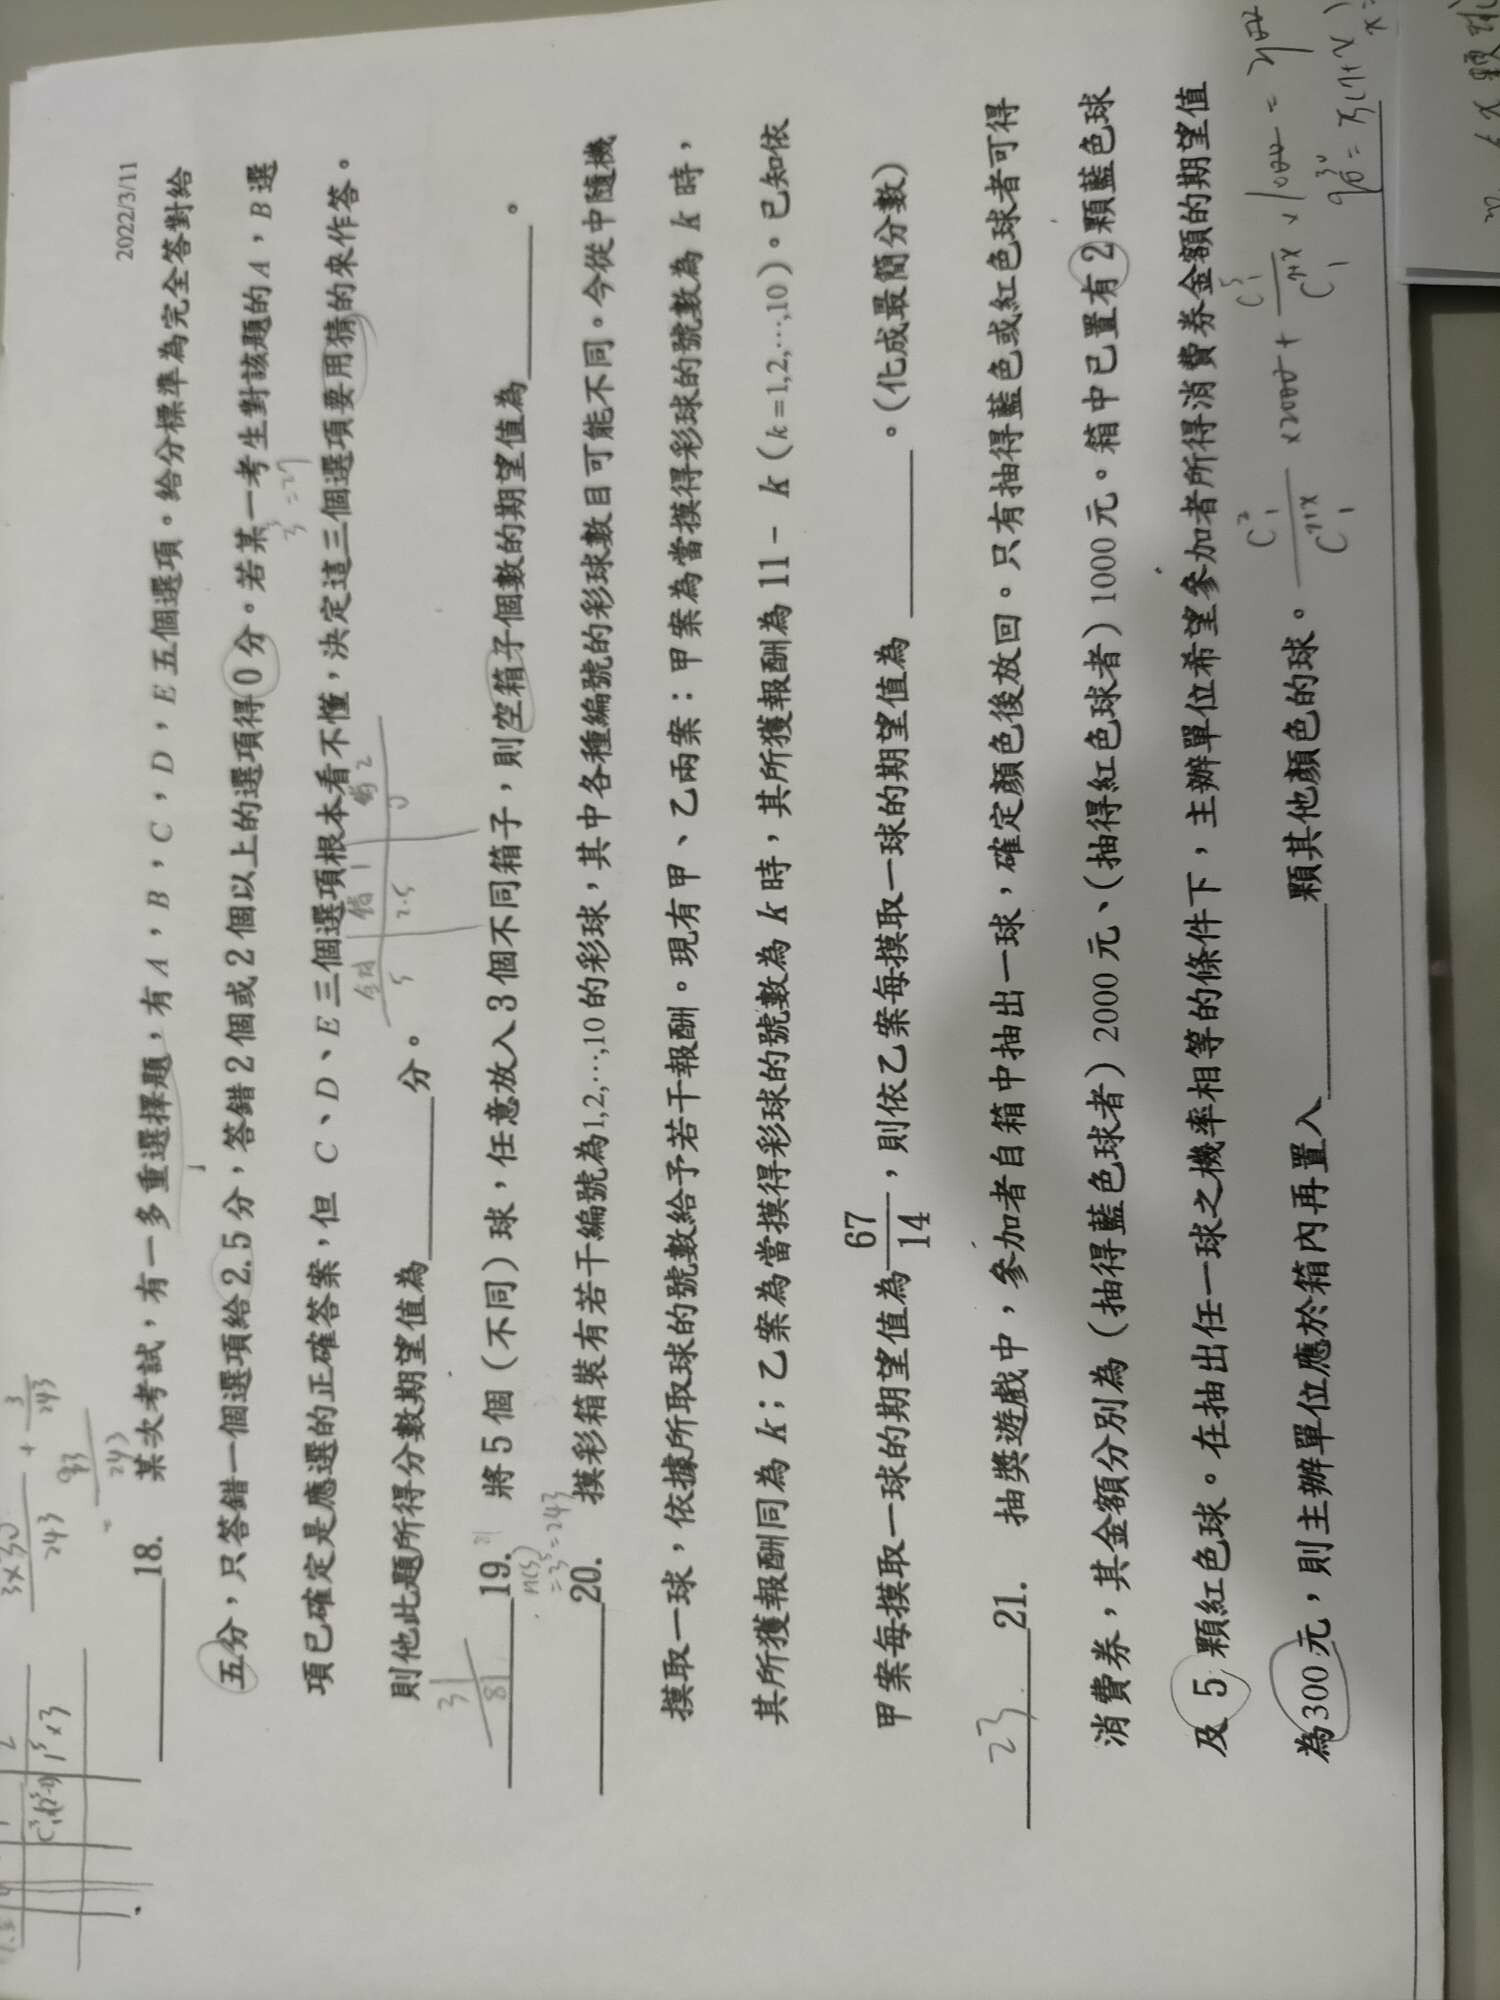 2022/3/11
18. 某次考試,有一多重選擇題,有 A,B,C,D,E 五個選項。給分標準為完全答對給
五分,只答錯一個選項給 2.5 分,答錯 2 個或 2 個以上的選項得 0 分。若某一考生對該題的 A,B 選
3³ = 27
項已確定是應選的正確答案,但 C、D、E 三個選項根本看不懂,決定這三個選項要用猜的來作答。
全對 錯1 錯2
5 2.5 0
則他此題所得分數期望值為 分。
31/81 19. 將 5 個(不同)球,任意放入 3 個不同箱子,則空箱子個數的期望值為 。
n(S) = 3⁵ = 243
20. 摸彩箱裝有若干編號為1,2,⋯,10 的彩球,其中各種編號的彩球數目可能不同。今從中隨機
摸取一球,依據所取球的號數給予若干報酬。現有甲、乙兩案:甲案為當摸得彩球的號數為 k 時,
其所獲報酬同為 k;乙案為當摸得彩球的號數為 k 時,其所獲報酬為 11 - k (k=1,2,⋯,10)。已知依
甲案每摸取一球的期望值為 67/14,則依乙案每摸取一球的期望值為 。(化成最簡分數)
23 21. 抽獎遊戲中,參加者自箱中抽出一球,確定顏色後放回。只有抽得藍色或紅色球者可得
消費券,其金額分別為(抽得藍色球者)2000 元、(抽得紅色球者)1000 元。箱中已置有 2 顆藍色球
及 5 顆紅色球。在抽出任一球之機率相等的條件下,主辦單位希望參加者所得消費券金額的期望值
為300 元,則主辦單位應於箱內再置入 顆其他顏色的球。